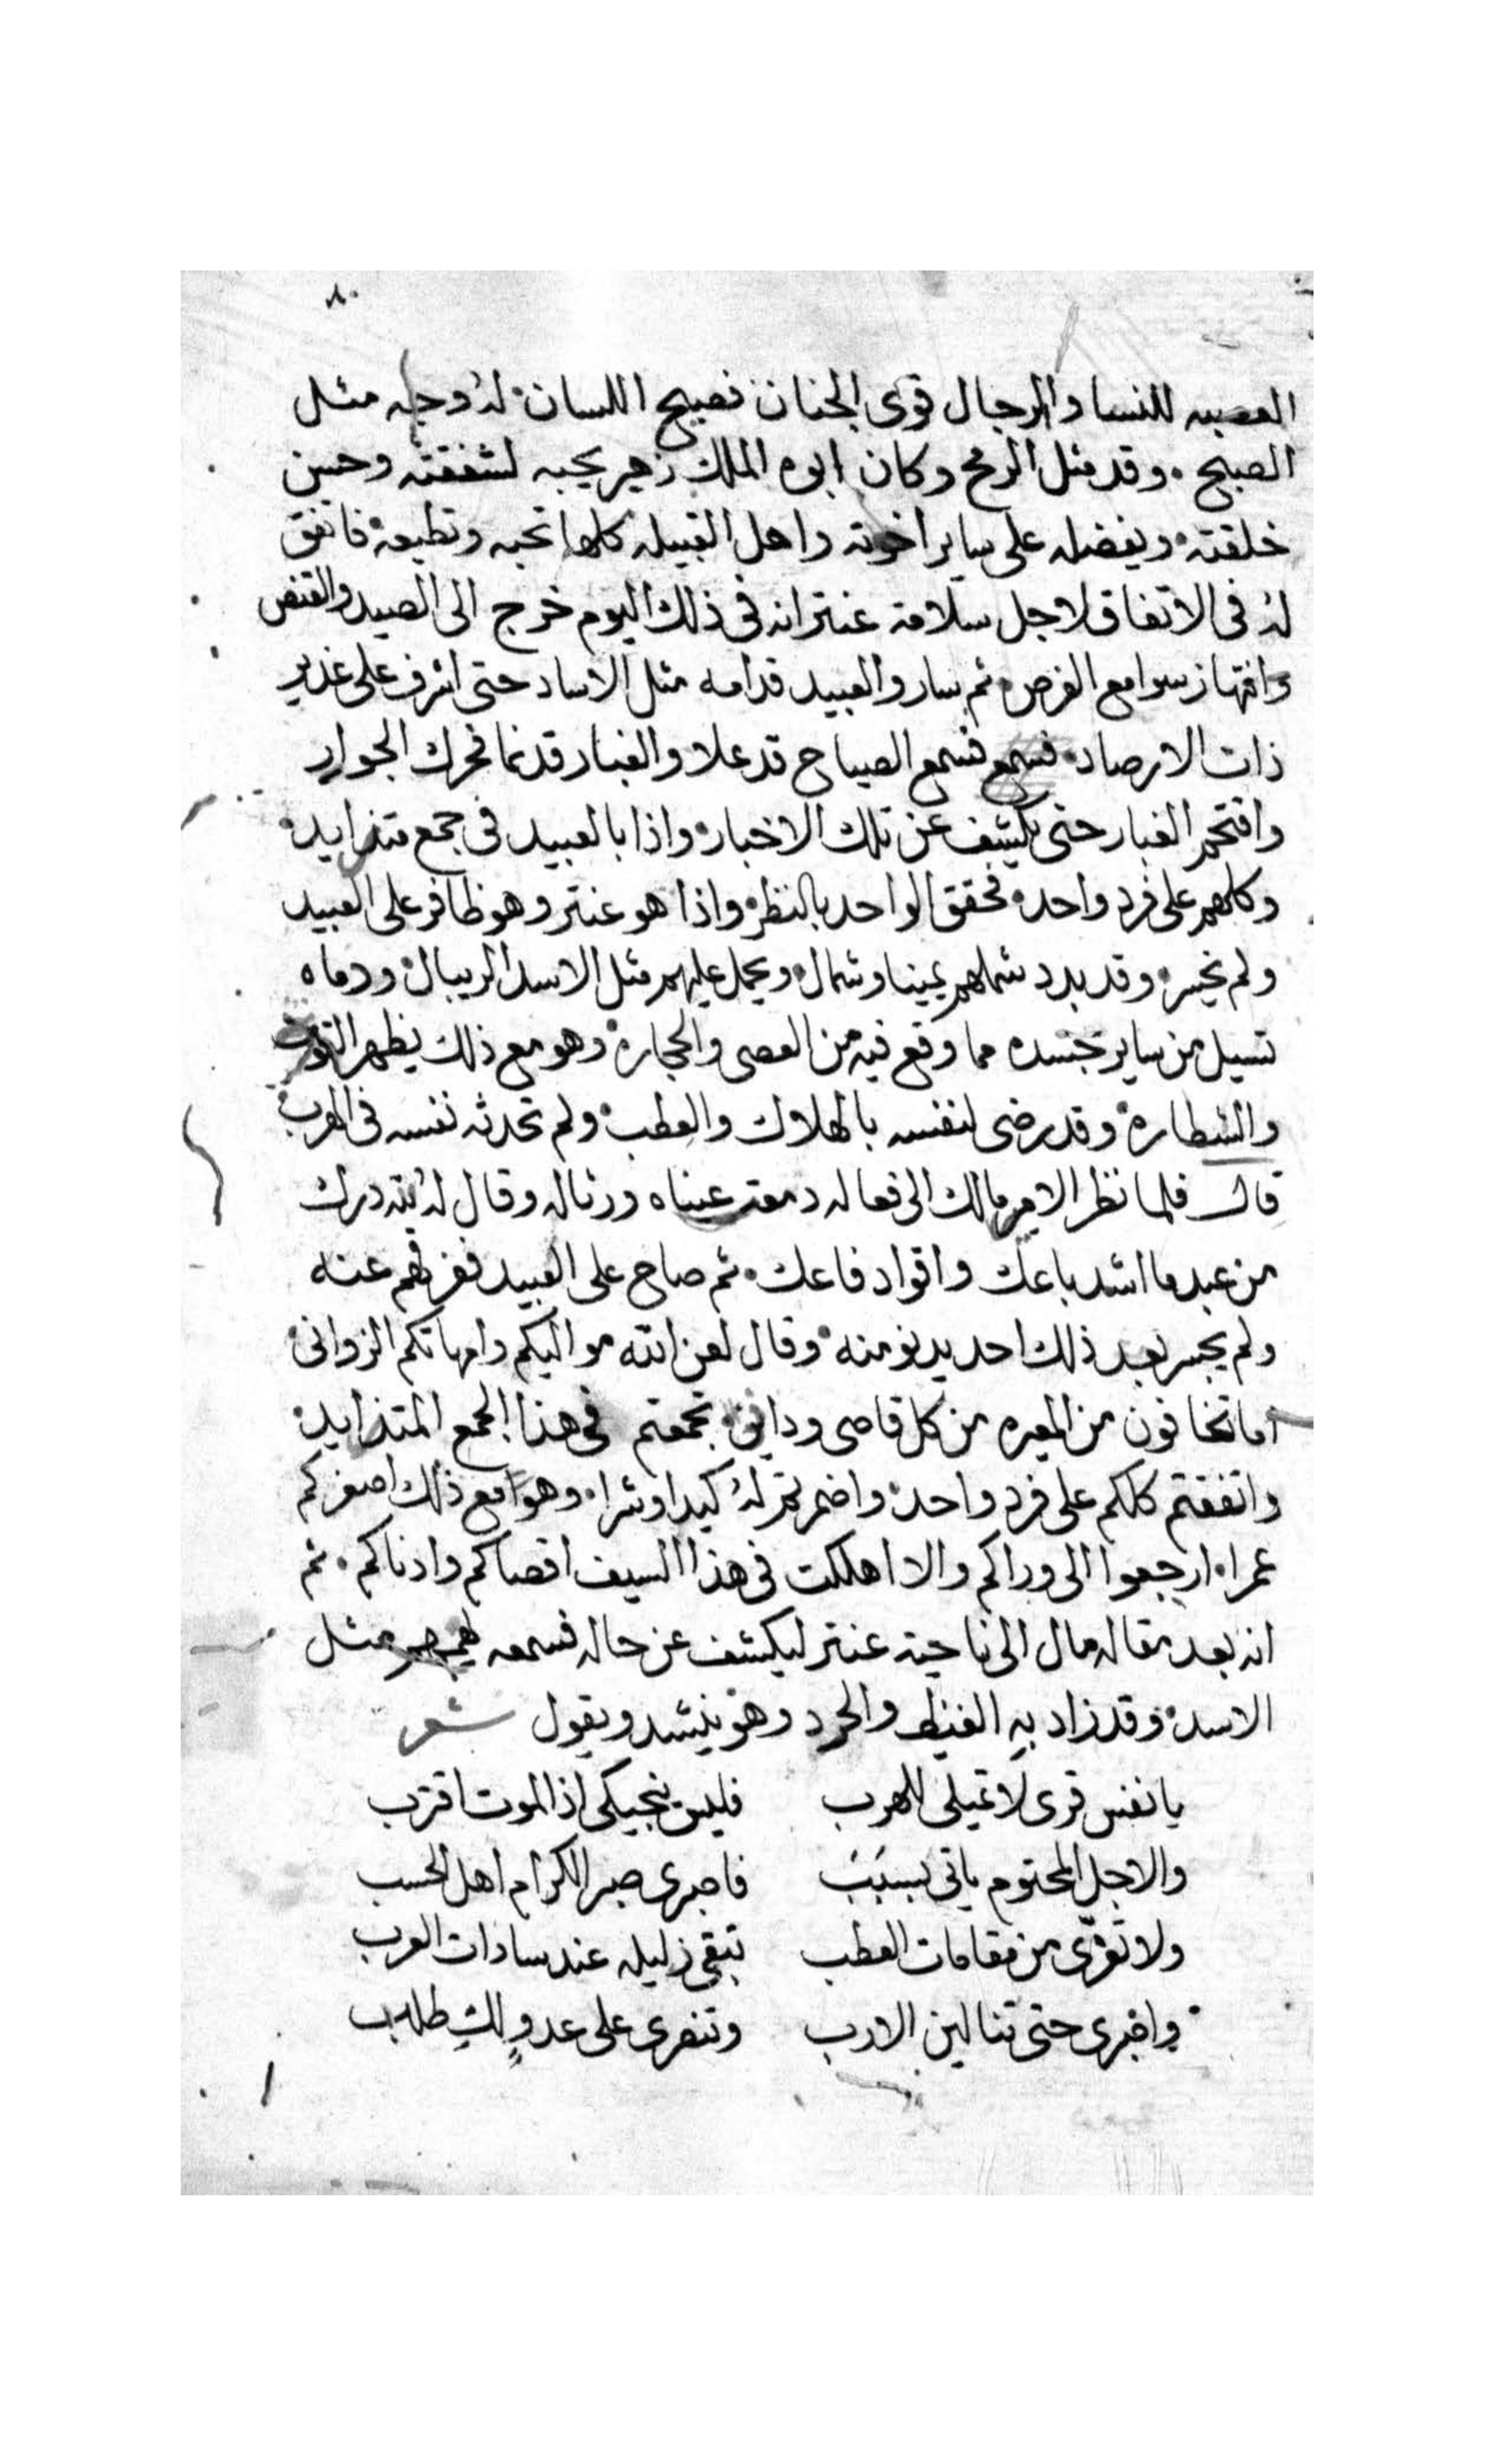 ٨٠
العصبيه للنسا والرجال قوى الجنان فصيح اللسان له وجه مثل
الصبح . وقد مثل الرمح وكان ابوه الملك زهير يحبه لشفقته وحسن
خلقته ويفضله على ساير اخوته واهل القبيله كلها تحبه وتطيعه فاتفق
له فى الاتفاق لاجل سلامة عنتر انه فى ذلك اليوم خرج الى الصيد والقنص
وانتهاز سوامع الفرص ثم سار والعبيد قدامه مثل الاساد حتى اشرف على غدير
ذات الارصاد فسمع الصياح قد علا والغبار قد نما فحرك الجواد
وافتحم الغبار حتى يكشف عن تلك الاخبار واذا بالعبيد فى جمع متزايد
وكلهم على فرد واحد فحقق الواحد بالنظر واذا هو عنتر وهو ظافر على العبيد
ولم يخسر وقد بدد شملهم يمينا وشمال ويحمل عليهم مثل الاسد الريبال ودماه
تسيل من ساير جسده مما وقع فيه من العصى والحجاره وهو مع ذلك يظهر
والشطاره وقد رضى لنفسه بالهلاك والعطب ولم تحدثه نفسه فى الهرب
قال فلما نظر الامير مالك الى فعاله دمعت عيناه ورثاله وقال له لله درك
من عبد ما اشد باعك واقواد فاعك . ثم صاح على العبيد ففرقهم عنه
ولم يجسر بعد ذلك احد يدنو منه وقال لعن الله مواليكم وامهاتكم الزوانى
اما تخافون من المعيره من كل قاصى ودانى تجمعتم فى هذا الجمع المتزايد
واتفقتم كلكم على فرد واحد واضمرتم له كيدا وشرا وهو مع ذلك اصغركم
عمرا ارجعوا الى وراكم والا اهلكت فى هذا السيف اقصاكم وادناكم . ثم
انه بعد مقاله مال الى ناحية عنتر ليكشف عن حاله فسمعه يهمهم مثل
الاسد وقد زاد به الغيظ والحرد وهو ينشد ويقول شعر
يا نفس قرى لا تميلى للهرب فليس ينجيكى اذا الموت اقترب
والاجل المحتوم ياتى بسبب فاصبرى صبر الكرام اهل الحسب
ولا تفرى من مقامات العطب تبقى زليله عند سادات العرب
واصبرى حتى تنالين الارب وتنصرى على عدو لك طلب